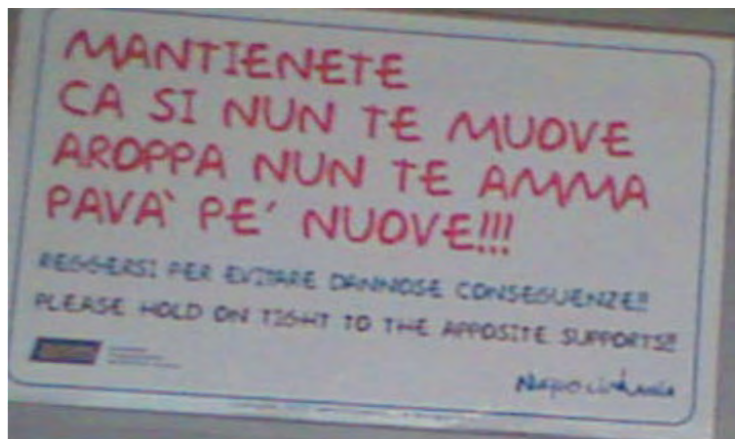 MANTIENETE
CA SI NUN TE MUOVE
AROPPA NUN TE AMMA
PAVA` PE´ NUOVE!!!
REGGERSI PER EVITARE DANNOSE CONSEGUENZE!!
PLEASE HOLD ON TIGHT TO THE APPOSITE SUPPORTS!!